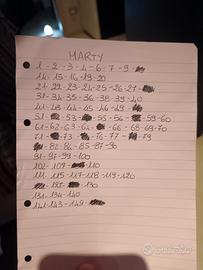 MARTY
1 - 2 - 3 - 4 - 6 - 7 - 9 -
14 - 15 - 16 - 19 - 20
21 - 22 - 23 - 24 - 25 - 26 - 27 -
31 - 34 - 35 - 36 - 38 - 39 - 40
41 - 43 - 44 - 45 - 46 - 49 -
51 - 53 - 55 - 56 - 59 - 60
61 - 62 - 63 - 64 - 66 - 68 - 69 - 70
71 - 73 - 76 - 77 - 79
82 - 84 - 85 - 87 - 90
91 - 97 - 99 - 100
102 - 107 - 110
111 - 115 - 117 - 118 - 119 - 120
130
131 - 134 - 140
141 - 143 - 149 -